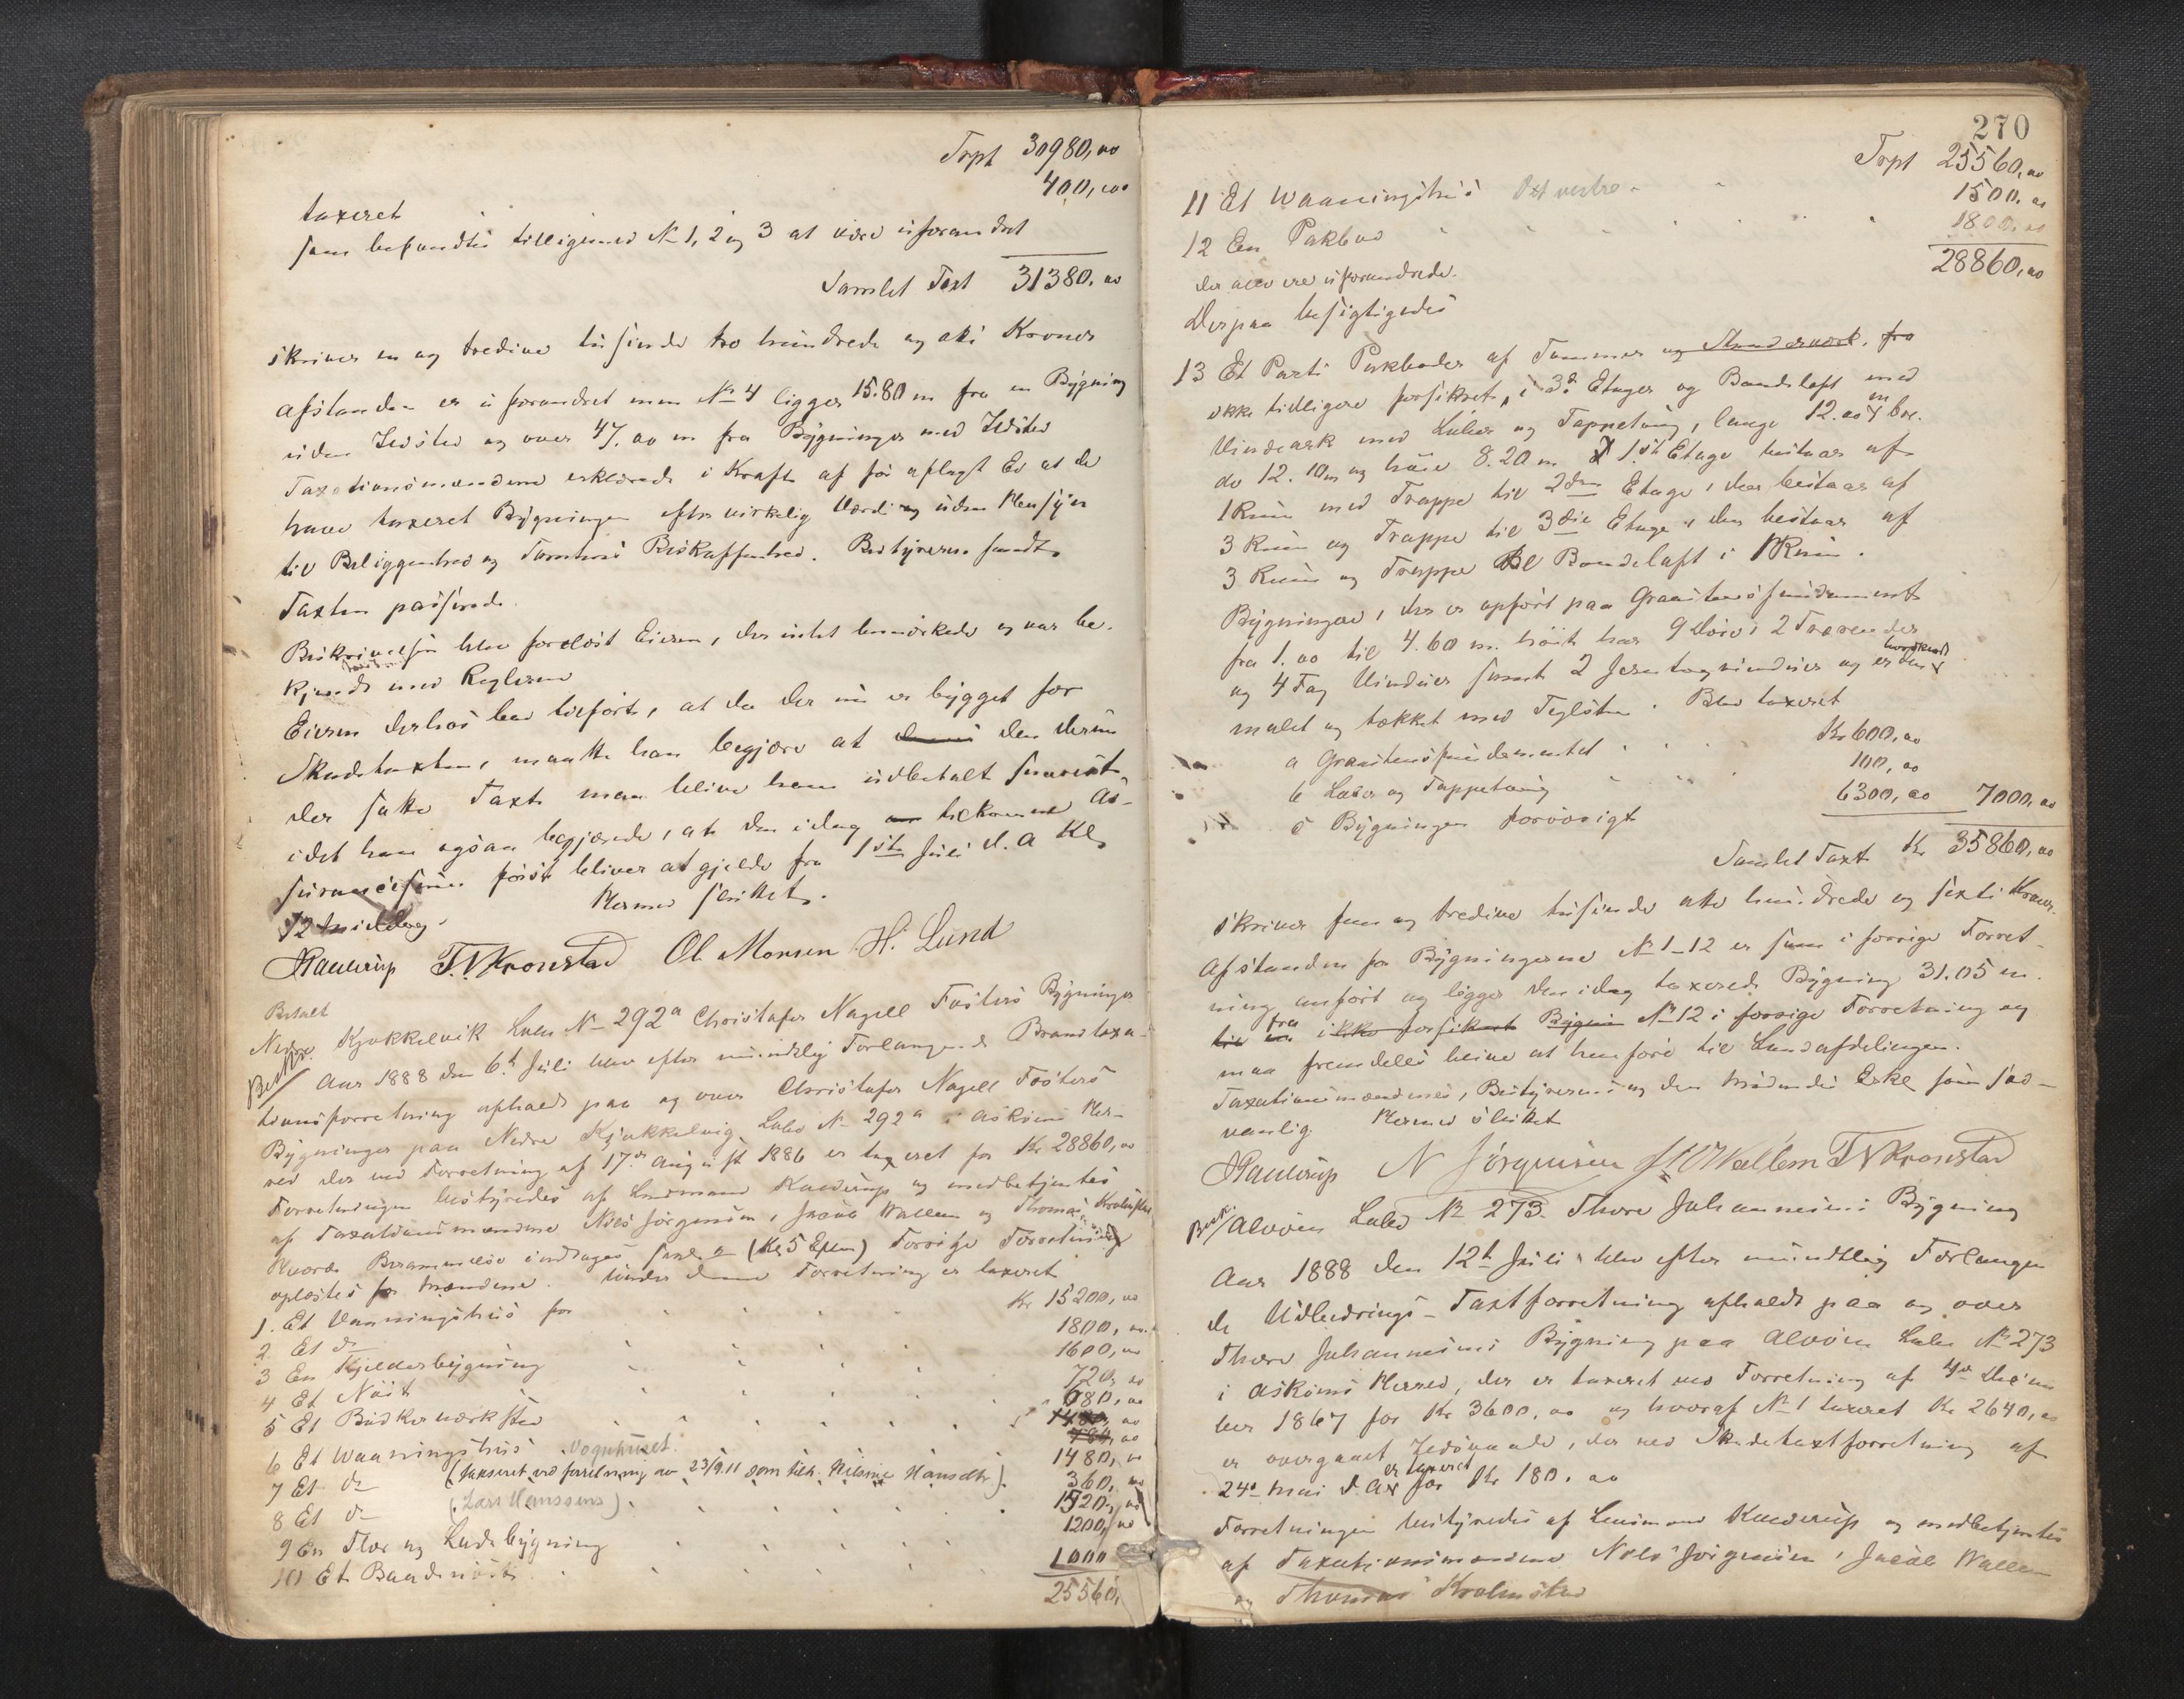 Trpt 30980,00
400,00
taxeret
som befandtes tilligemed No 1, 2 og 3 at være uforandret
Samlet Taxt 31380,00
skriver en og tredive tusinde tre hundrede og otti Kroner
Afstanden er uforandret men No 4 ligger 15.80 m fra en Bygning
uden Ildsted og over 47.00 m fra Bygninger med Ildsted
Taxationsmændene erklærede i Kraft af før aflagt Ed at de
have taxeret Bygningen efter virkelig Værdi og uden Hensyn
til Beliggenhed og Tomtens Beskaffenhed. Bestyreren fandt
Taxten passende.
Beskrivelsen blev forelæst Eieren, der intet bemærkede og var be-
kjendt med Reglerne
Eieren derhos lod tilføre, at da der nu er bygget for
Skadetaxten, maatte han begjære at den derunder
satte Taxt maa blive ham udbetalt snarest,
idet han ogsaa begjærede, at den idag tilkomne As-
suransesum først bliver at gjelde fra 1ste Juli d. A Kl
12 Middag. Hermed sluttet.
Kaurup T. N Kronstad Ol. Monsen H. Lund
Betalt
Nedre Kjøkkelvik Løbe No 292a Christofer Nagell Fosters Bygninger
Besk. Aar 1888 den 6t Juli blev efter mundtlig Forlangende Brandtaxa-
tionsforretning afholdt paa og over Christofer Nagell Fosters
Bygninger paa Nedre Kjøkkelvig Løbe No 292a i Askøens Her-
red der ved Forretning af 17de August 1886 er taxeret for Kr 28860,00
Forretningen bestyredes af Lensmand Kaurup og medbetjentes
af Taxationsmændene Nils Jørgensen, Jacob Wallem og Thomas Kronstad
hvorde Berammelse indtages (Kr 5 Exp) Forrige Forretning
oplæstes for Mændene. Under denne Forretning er taxeret
1. Et Vaaningshus for Kr 15200,00
2 Et do 1800,00
3 En Kjelderbygning 1600,00
4 Et Nøst 720,00
5 Et Bødkerværksted 680,00
6 Et Vaaningshus Vognhuset. 1480,00
7 Et do (taxeret ved forretning av 23/9.11 som tilh. Nilsine Hansdtr). 360,00
8 Et do (Lars Hanssens). 1520,00
9 En Flor og Ladebygning 1200,00
10 Et Baadnøst 1000
25560,
270
Trpt 25560,00
11 Et Waaningshus Det vestre 1500.00
12 En Pakbod 1800.00
28860,00
der alle ere uforandrede.
Derpaa besigtigedes
13 Et Parti Pakboder af Tømmer og Standerværk, fra
ikke tidligere forsikret, i 3de Etager og Bandeloft med
Vindeark med Luker og Tappetøug, lange 12.00 m brr.
do 12.10 m og høie 8.20 m 1ste Etage bestaar af
1 Rum med Trappe til 2den Etage, der bestaar af
3 Rum og Trappe til 3die Etage, der bestaar af
3 Rum og Trappe til Bandeloft i 1 Rum.
Bygningen, der er opført paa Graastensfundament
fra 1.00 til 4.60 m. høit har 9 Døre i 2 Svarender
og 4 Fag Vinduer samt 2 Jerntagvinduer og er den
malet og tækket med Teglsten. Blev taxeret
a Graastensfundamentet Kr 600,00
b Luker og Tappetøug 100,00
c Bygningen forøvrigt 6300,00 7000,00
Samlet Taxt Kr 35860,00
skriver fem og tredive tusinde otte hundrede og sexti Kroner.
Afstanden for Bygningerne No 1-12 er som i forrige Forret-
ning anført og ligger den idag taxerede Bygning 31.05 m.
fra ikke forsikret Bygnin No 12 i forrige Forretning og
maa fremdeles blive at henføre til Landafdelingen.
Taxationsmændenes, Bestyrerens og den Mødendes Erkl som sæd-
vanlig. Hermed sluttet
Kaurup N Jørgensen J. Wallem T N Kronstad
Besk. Alvøen Løbe No 273. Thore Johannesens Bygning
Aar 1888 den 12te Juli blev efter mundtlig Forlangen
de Udbedrings-Taxtforretning afholdt paa og over
Thore Johannesens Bygning paa Alvøen Løbe No 273
i Askøens Herred, der er taxeret ved Forretning af 4de Decem
ber 1867 for Kr 3600,00 og hvoraf No 1 taxeret Kr 2640,00
er overgaaet Ildsvaade, der ved Skadetaxtforretning af
24de Mai d. A er taxeret for Kr 180.00
Forretningen bestyredes af Lensmand Kaurup og medbetjentes
af Taxationsmændene Nils Jørgensen, Jacob Wallem
og Thomas Kronstad